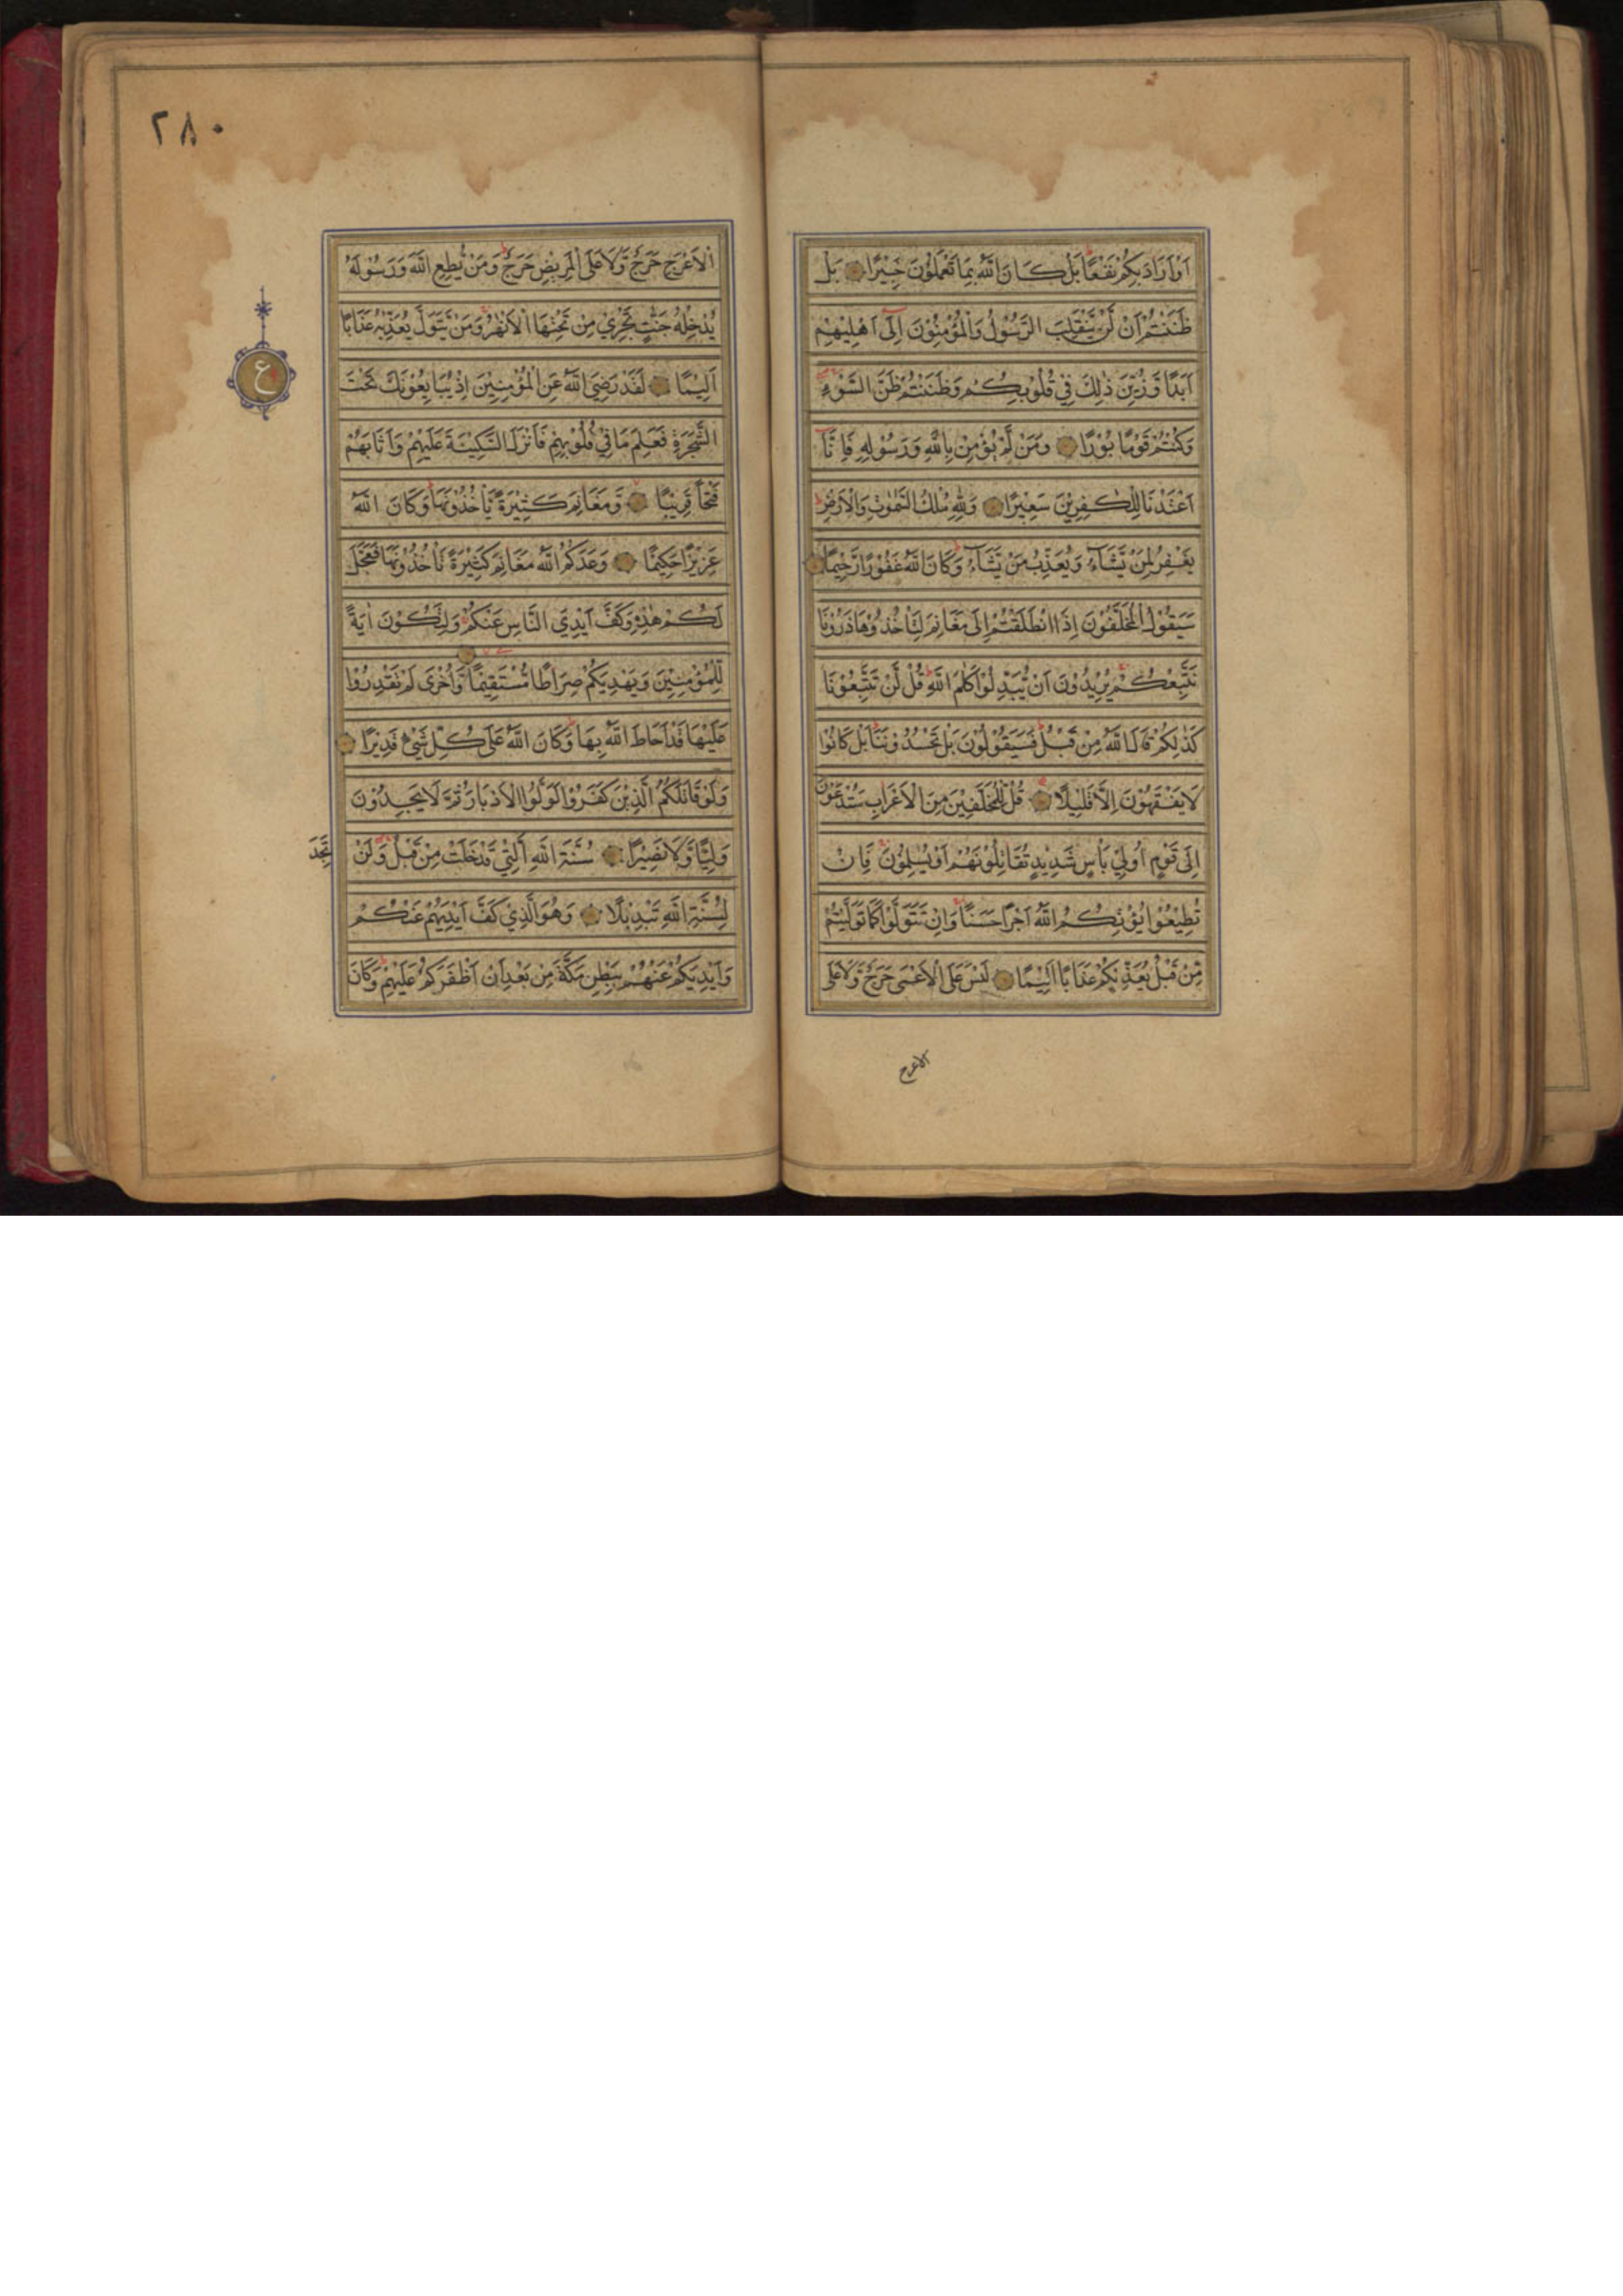 اَوْ اَرَادَ بِكُمْ نَفْعًا بَلْ كَانَ اللّٰهُ بِمَا تَعْمَلُوْنَ خَبِيْرًا بَلْ
ظَنَنْتُمْ اَنْ لَّنْ يَّنْقَلِبَ الرَّسُوْلُ وَالْمُؤْمِنُوْنَ اِلٰٓى اَهْلِيْهِمْ
اَبَدًا وَّ زُيِّنَ ذٰلِكَ فِيْ قُلُوْبِكُمْ وَظَنَنْتُمْ ظَنَّ السَّوْءِ
وَكُنْتُمْ قَوْمًا بُوْرًا وَمَنْ لَّمْ يُؤْمِنْ بِاللّٰهِ وَرَسُوْلِهٖ فَاِنَّآ
اَعْتَدْنَا لِلْكٰفِرِيْنَ سَعِيْرًا وَلِلّٰهِ مُلْكُ السَّمٰوٰتِ وَالْاَرْضِ
يَغْفِرُ لِمَنْ يَّشَآءُ وَيُعَذِّبُ مَنْ يَّشَآءُ وَكَانَ اللّٰهُ غَفُوْرًا رَّحِيْمًا
سَيَقُوْلُ الْمُخَلَّفُوْنَ اِذَا انْطَلَقْتُمْ اِلٰى مَغَانِمَ لِتَاْخُذُوْهَا ذَرُوْنَا
نَتَّبِعْكُمْ يُرِيْدُوْنَ اَنْ يُّبَدِّلُوْا كَلٰمَ اللّٰهِ قُلْ لَّنْ تَتَّبِعُوْنَا
كَذٰلِكُمْ قَالَ اللّٰهُ مِنْ قَبْلُ فَسَيَقُوْلُوْنَ بَلْ تَحْسُدُوْنَنَا بَلْ كَانُوْا
لَا يَفْقَهُوْنَ اِلَّا قَلِيْلًا قُلْ لِّلْمُخَلَّفِيْنَ مِنَ الْاَعْرَابِ سَتُدْعَوْنَ
اِلٰى قَوْمٍ اُولِيْ بَاْسٍ شَدِيْدٍ تُقَاتِلُوْنَهُمْ اَوْ يُسْلِمُوْنَ فَاِنْ
تُطِيْعُوْا يُؤْتِكُمُ اللّٰهُ اَجْرًا حَسَنًا وَاِنْ تَتَوَلَّوْا كَمَا تَوَلَّيْتُمْ
مِّنْ قَبْلُ يُعَذِّبْكُمْ عَذَابًا اَلِيْمًا لَيْسَ عَلَى الْاَعْمٰى حَرَجٌ وَّلَا عَلَى
الاعرج
٢٨٠
الْاَعْرَجِ حَرَجٌ وَّلَا عَلَى الْمَرِيْضِ حَرَجٌ وَمَنْ يُّطِعِ اللّٰهَ وَرَسُوْلَهٗ
يُدْخِلْهُ جَنّٰتٍ تَجْرِيْ مِنْ تَحْتِهَا الْاَنْهٰرُ وَمَنْ يَّتَوَلَّ يُعَذِّبْهُ عَذَابًا
ع
اَلِيْمًا لَقَدْ رَضِيَ اللّٰهُ عَنِ الْمُؤْمِنِيْنَ اِذْ يُبَايِعُوْنَكَ تَحْتَ
الشَّجَرَةِ فَعَلِمَ مَا فِيْ قُلُوْبِهِمْ فَاَنْزَلَ السَّكِيْنَةَ عَلَيْهِمْ وَاَثَابَهُمْ
فَتْحًا قَرِيْبًا وَّمَغَانِمَ كَثِيْرَةً يَّاْخُذُوْنَهَا وَكَانَ اللّٰهُ
عَزِيْزًا حَكِيْمًا وَعَدَكُمُ اللّٰهُ مَغَانِمَ كَثِيْرَةً تَاْخُذُوْنَهَا فَعَجَّلَ
لَكُمْ هٰذِهٖ وَكَفَّ اَيْدِيَ النَّاسِ عَنْكُمْ وَلِتَكُوْنَ اٰيَةً
لِّلْمُؤْمِنِيْنَ وَيَهْدِيَكُمْ صِرَاطًا مُّسْتَقِيْمًا وَّاُخْرٰى لَمْ تَقْدِرُوْا
عَلَيْهَا قَدْ اَحَاطَ اللّٰهُ بِهَا وَكَانَ اللّٰهُ عَلٰى كُلِّ شَيْءٍ قَدِيْرًا
وَلَوْ قَاتَلَكُمُ الَّذِيْنَ كَفَرُوْا لَوَلَّوُا الْاَدْبَارَ ثُمَّ لَا يَجِدُوْنَ
وَلِيًّا وَّلَا نَصِيْرًا سُنَّةَ اللّٰهِ الَّتِيْ قَدْ خَلَتْ مِنْ قَبْلُ وَلَنْ تَجِدَ
لِسُنَّةِ اللّٰهِ تَبْدِيْلًا وَهُوَ الَّذِيْ كَفَّ اَيْدِيَهُمْ عَنْكُمْ
وَاَيْدِيَكُمْ عَنْهُمْ بِبَطْنِ مَكَّةَ مِنْ بَعْدِ اَنْ اَظْفَرَكُمْ عَلَيْهِمْ وَكَانَ